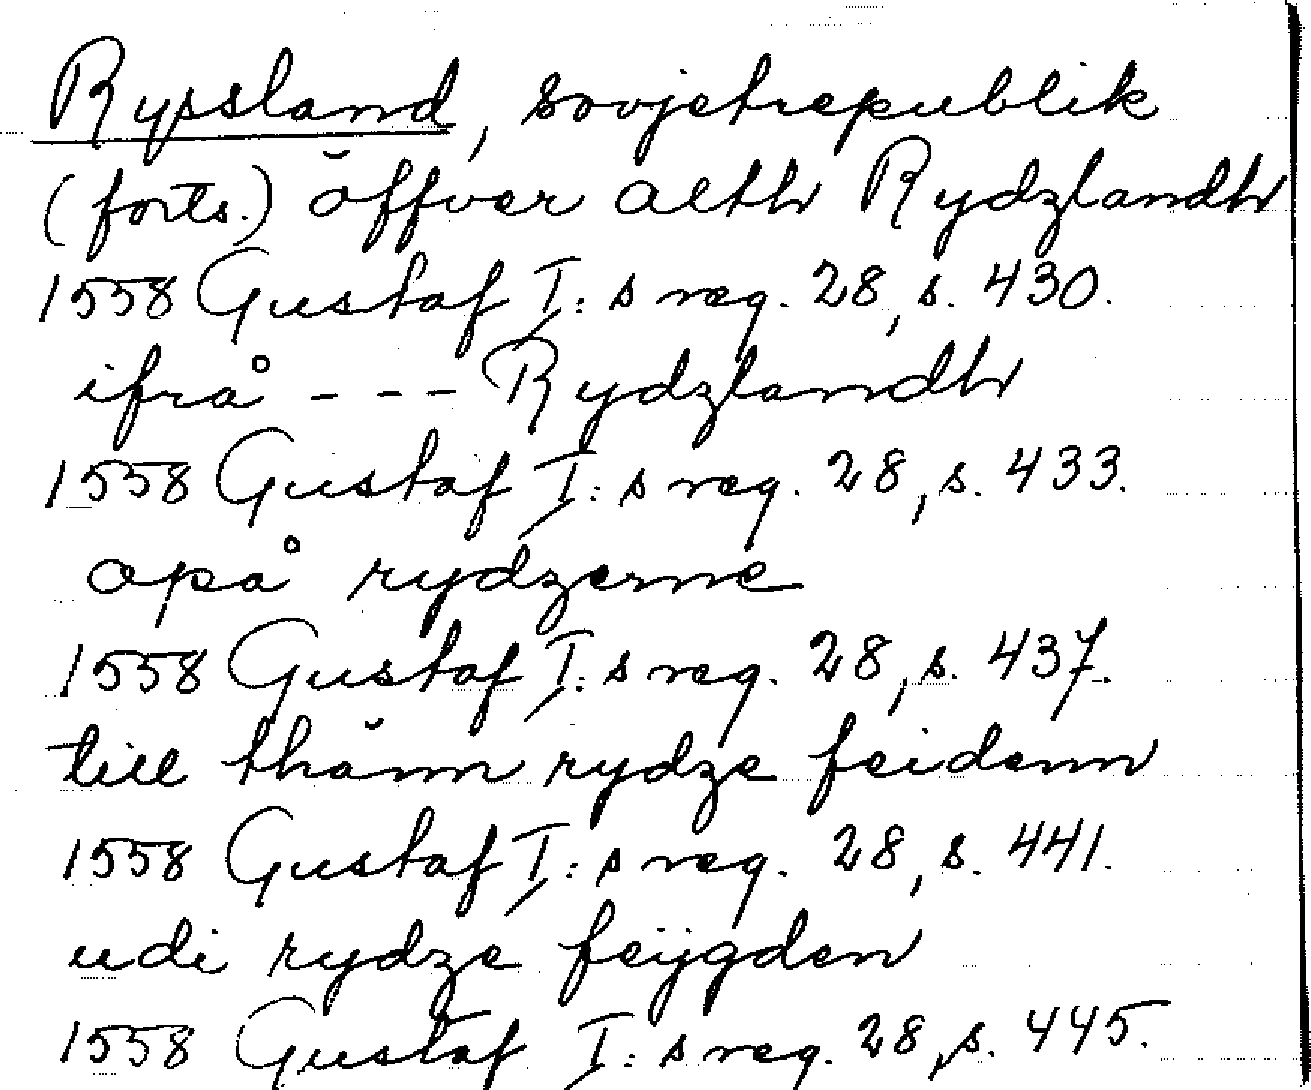 Ryssland, sovjetrepublik
(forts.) öffver alth Rydzlandh
1558 Gustaf I:s reg. 28, s. 430.
ifrå --- Rydzlandh
1558 Gustaf I:s reg. 28, s. 433.
opå rydzerne
1558 Gustaf I:s reg. 28, s. 437.
till thänn rydze feidenn
1558 Gustaf I:s reg. 28, s. 441.
udi rydze feijgden
1558 Gustaf I:s reg. 28, s. 445.